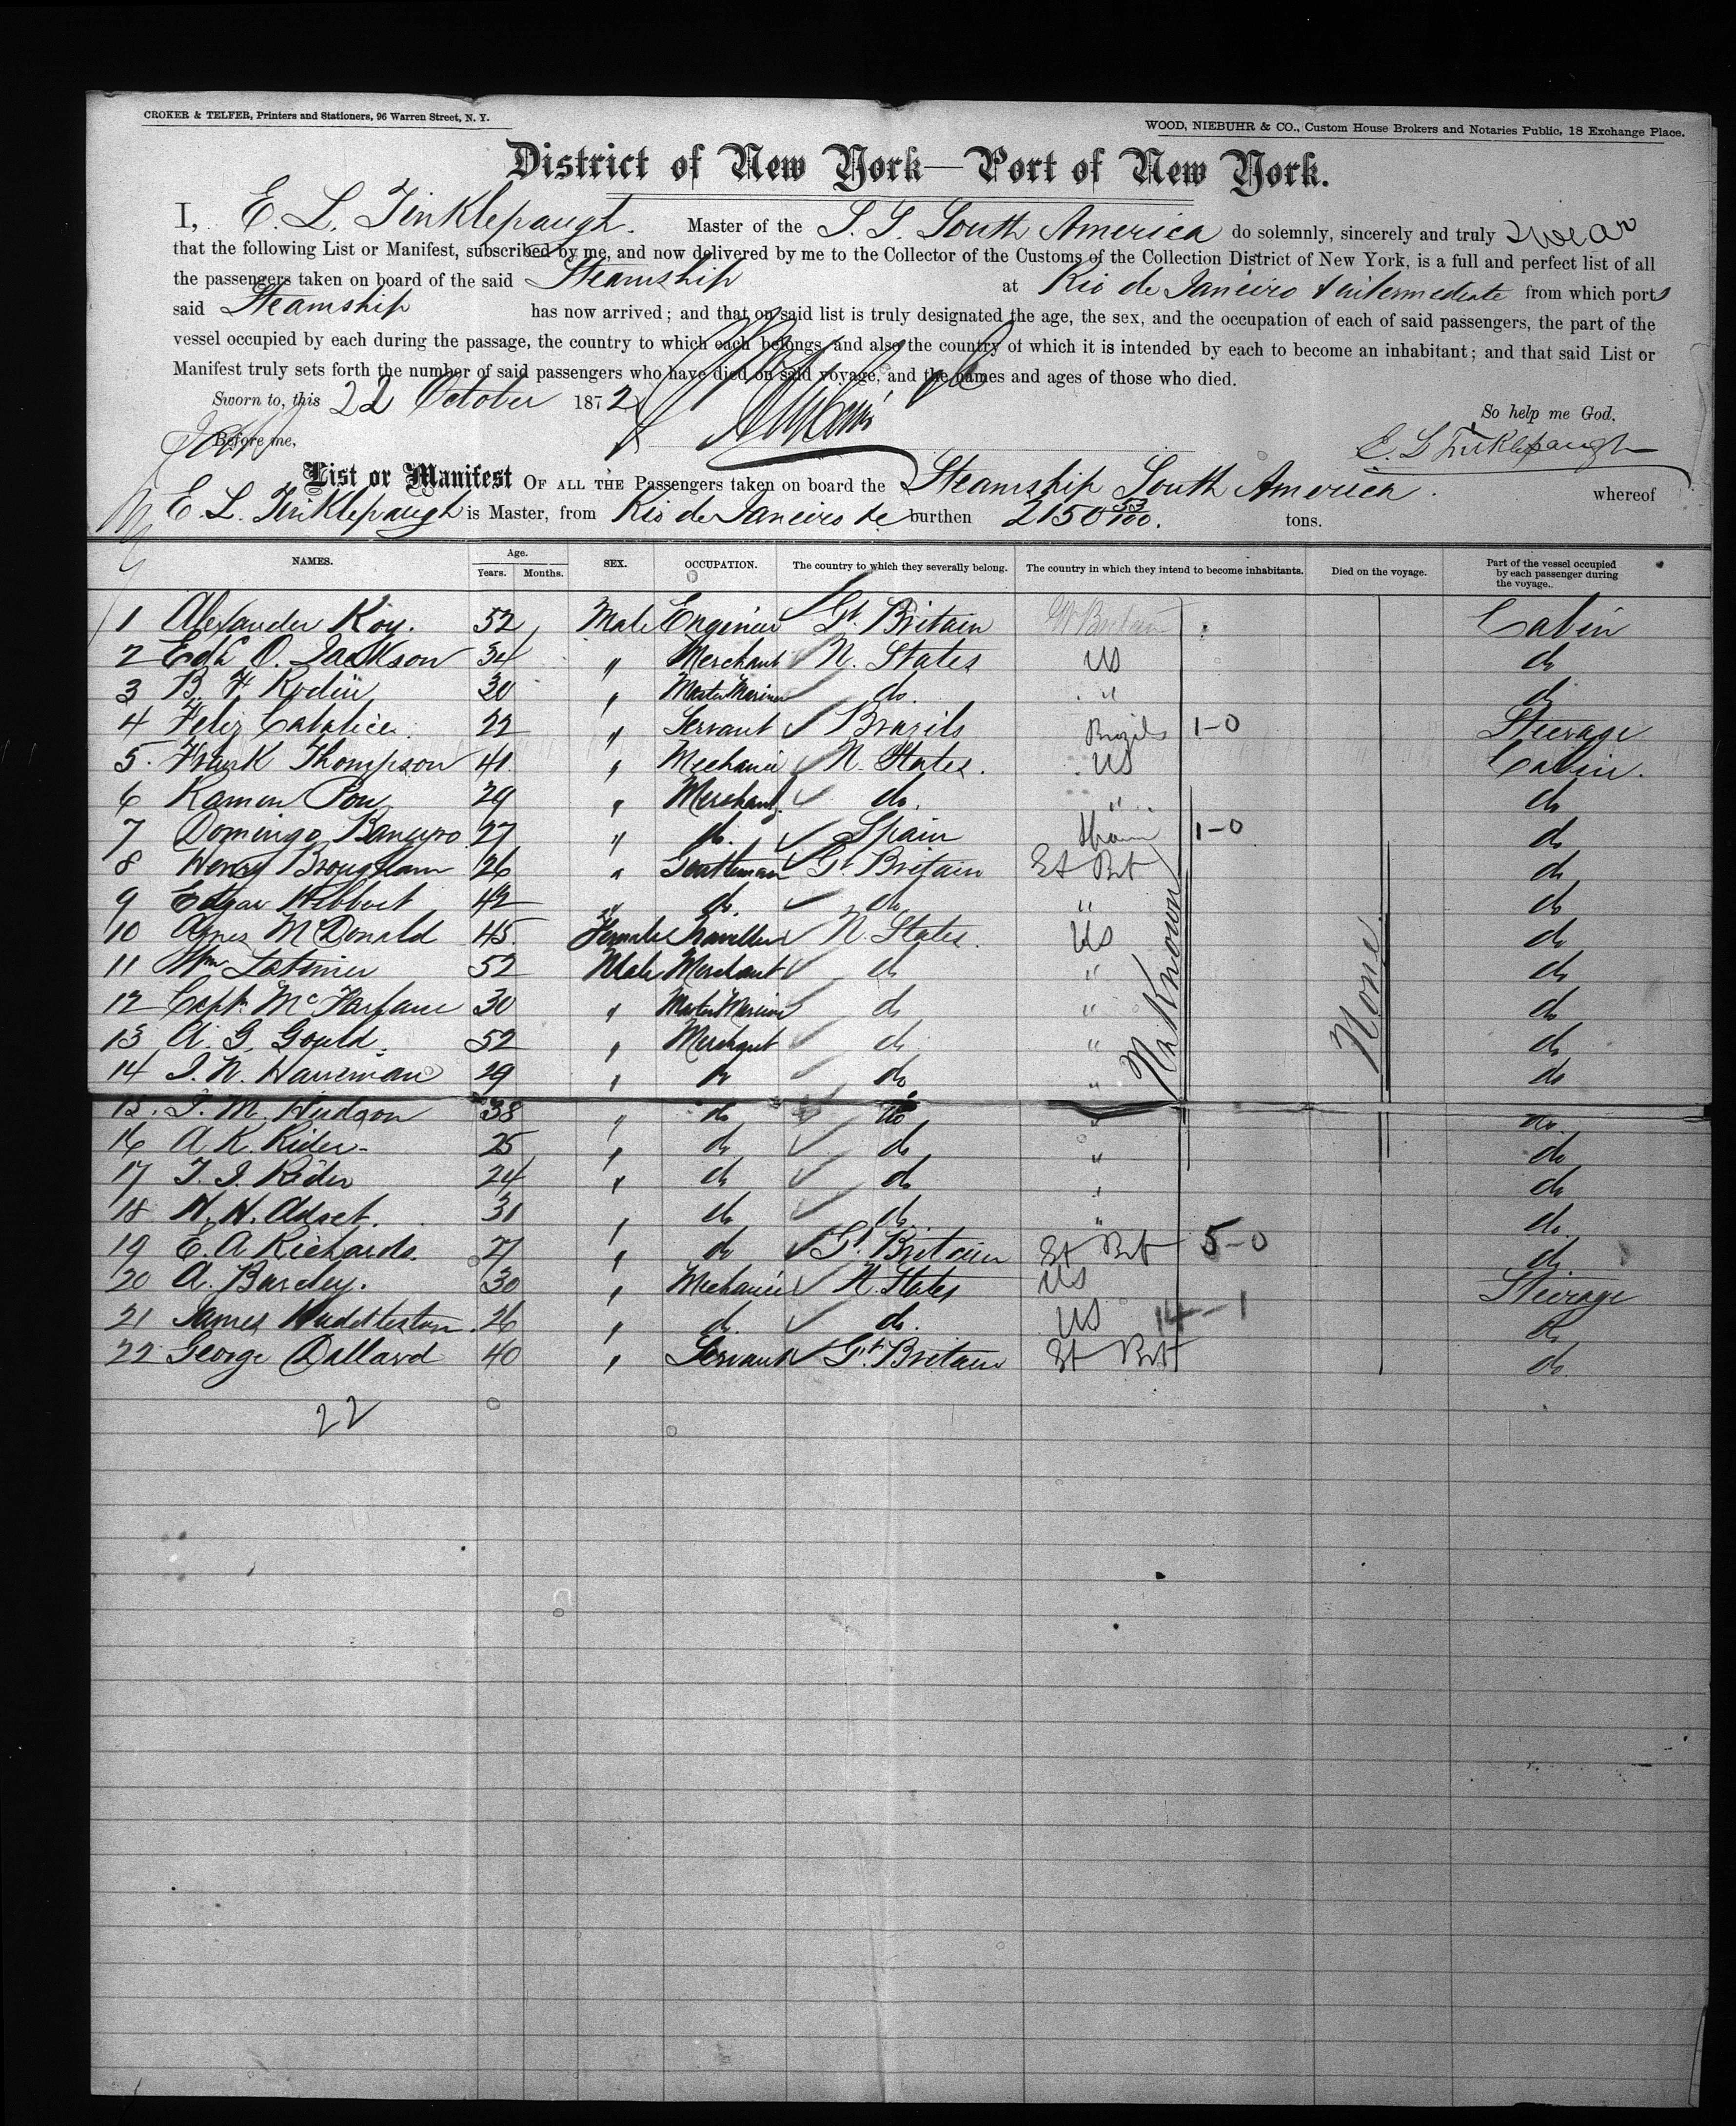 CROKER & TELFER, Printers and Stationers, 96 Warren Street, N. Y.
WOOD, NIEBUHR & CO., Custom House Brokers and Notaries Public, 18 Exchange Place.
District of New York—Port of New York.
I, E. L. Tinklepaugh. Master of the S. S. South America do solemnly, sincerely and truly swear
that the following List or Manifest, subscribed by me, and now delivered by me to the Collector of the Customs of the Collection District of New York, is a full and perfect list of all
the passengers taken on board of the said Steamship at Rio de Janeiro & intermediate from which ports
said Steamship has now arrived; and that on said list is truly designated the age, the sex, and the occupation of each of said passengers, the part of the
vessel occupied by each during the passage, the country to which each belongs, and also the country of which it is intended by each to become an inhabitant; and that said List or
Manifest truly sets forth the number of said passengers who have died on said voyage, and the names and ages of those who died.
Sworn to, this 22 October 1872
So help me God.
Before me,
E. L. Tinklepaugh
List or Manifest OF ALL THE Passengers taken on board the Steamship South America. whereof
E. L. Tinklepaugh is Master, from Rio de Janeiro &c burthen 2150 53/100. tons.
NAMES. Age. Years. Months. SEX. OCCUPATION. The country to which they severally belong. The country in which they intend to become inhabitants. Died on the voyage. Part of the vessel occupied by each passenger during the voyage.
1 Alexander Roy. 52 Male Engineer Gt. Britain Gt Britain Cabin
2 Edd. O. Jackson 34 " Merchant U. States US do
3 B. F. 30 " Master Mariner do. " do
4 Feliz 22 " Servant Brazils Brazils 1-0 Steerage
5. Frank Thompson 41. " Mechanic U. States. US Cabin.
6 Ramon Pou 29 " Merchant do. " do
7 Domingo 27 " do. Spain Spain 1-0 do
8 Henry Brougham 26 " Gentleman Gt. Britain Gt Brt do
9 Edgar Hibbert 42 " do. do. " do
10 Agnes McDonald 45. Female Traveller U. States. US do
11 Wm Latimer 52 Male Merchant do " do
12 Capt. McFarlane 30 " Master Mariner do " do
13 A. G. Gould. 52 " Merchant do " do
14 J. N. Harriman 29 " do do " do
15. J. M. Hudson 38 " do do " do.
16 A. K. Rider 25 " do do " do
17 T. J. Rider 24 " do do " do
18 W. H. 31 " do do " do.
19 E. A Richards. 27 " do Gt. Britain Gt Brt 5-0 do.
20 A. Barcley. 30 " Mechanic U. States US Steerage
21 James Huddleston. 26 " do. do. US 14-1 do
22 George Dallard 40 " Servant Gt. Britain Gt Brt do.
Unknown
None
22